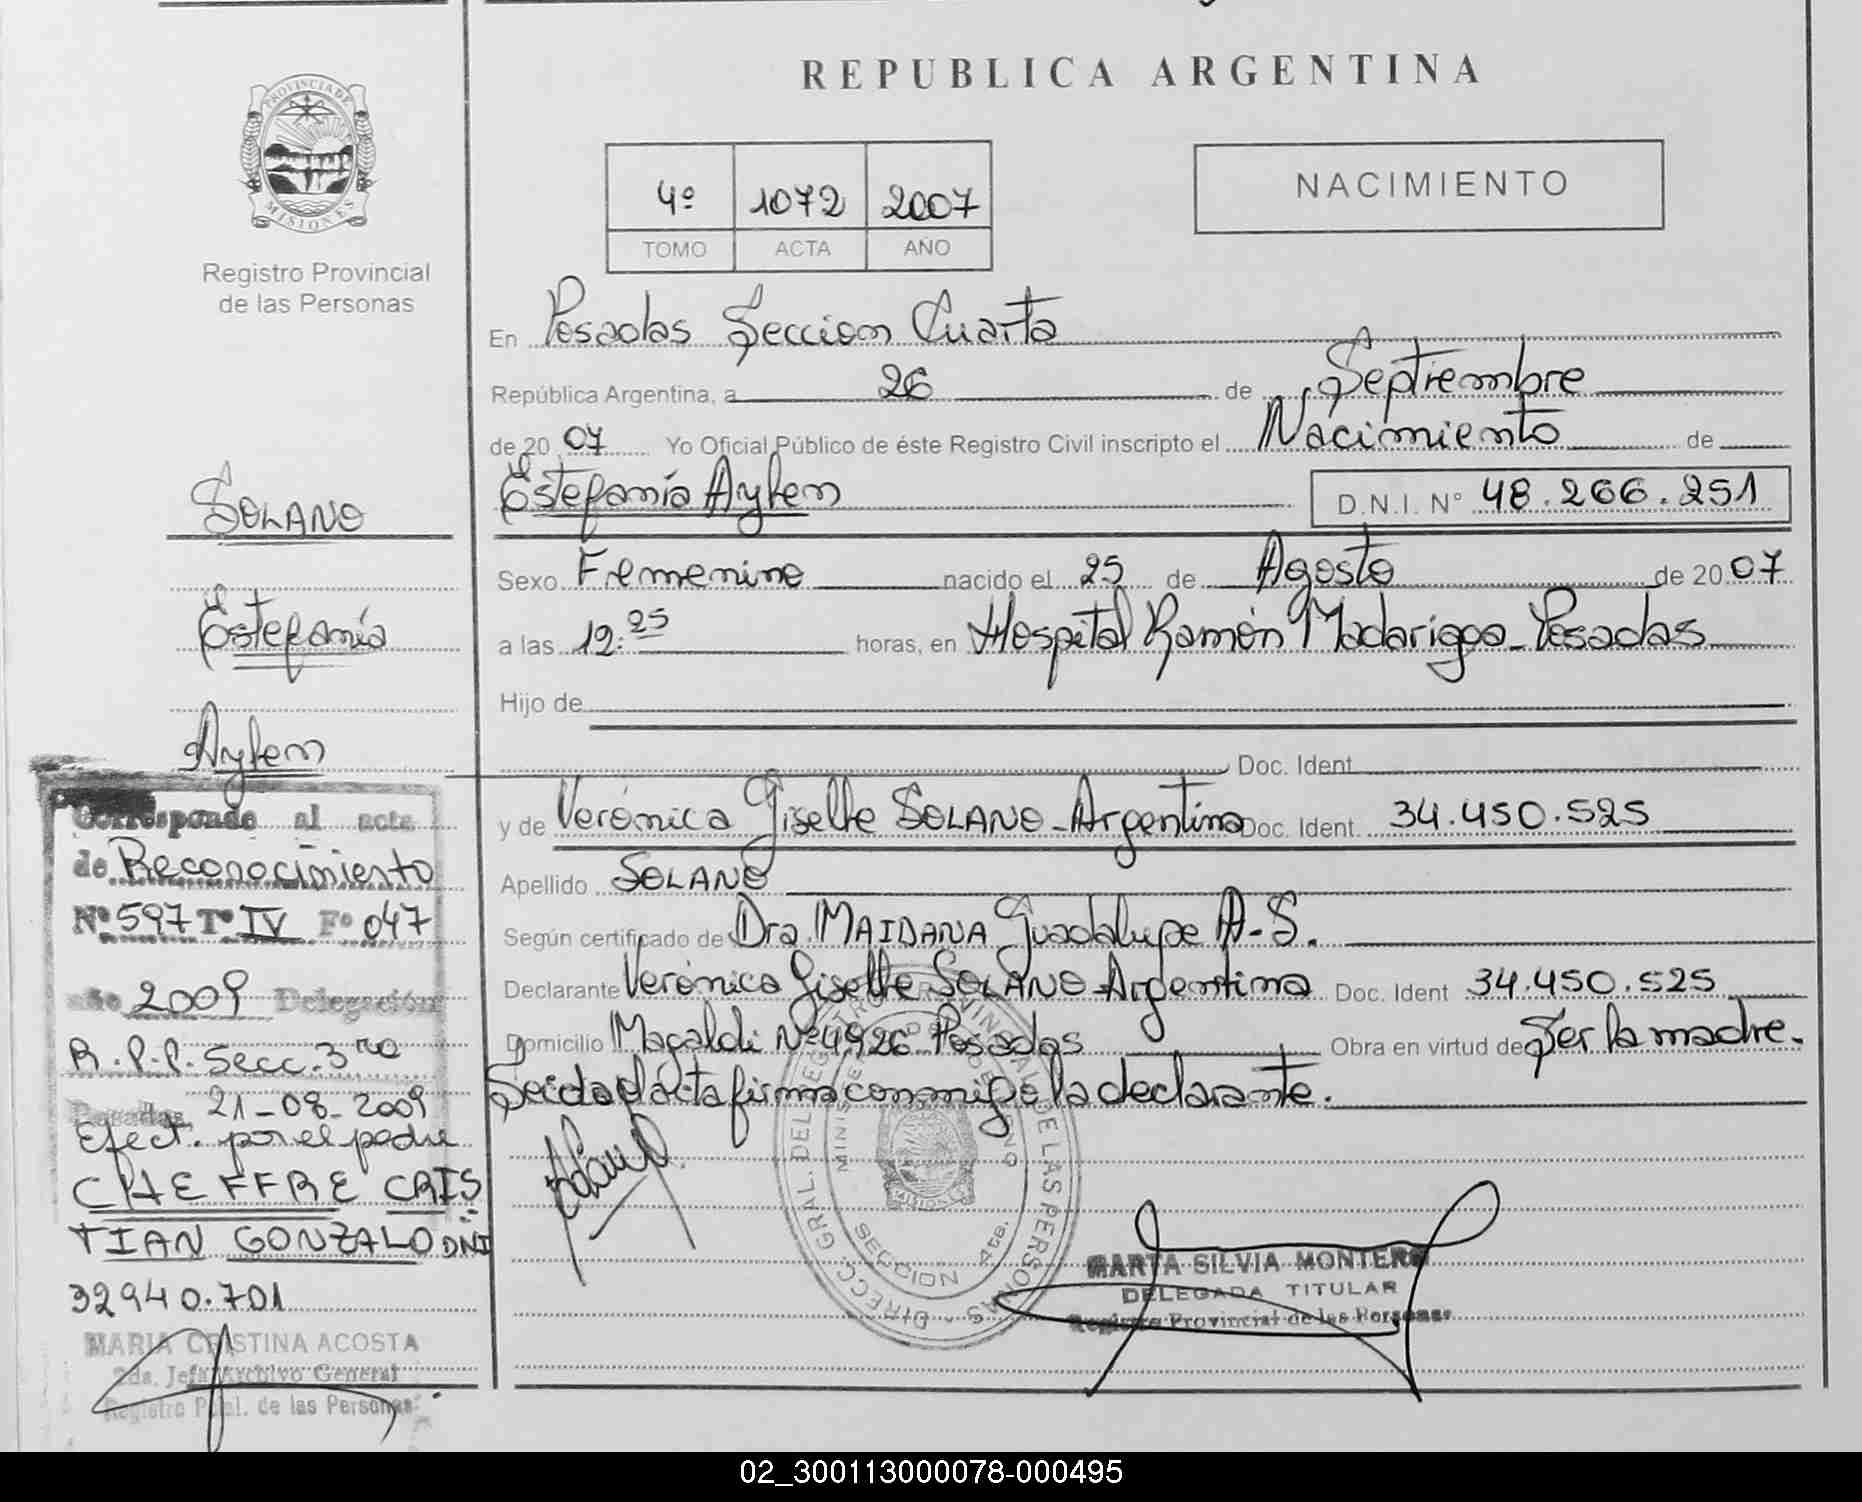 REPUBLICA ARGENTINA
PROVINCIA DE
MISIONES
Registro Provincial
de las Personas
4º 1072 2007
TOMO ACTA AÑO
NACIMIENTO
En Posadas Seccion Cuarta
República Argentina, a 26 de Septiembre
de 20 07 Yo Oficial Público de éste Registro Civil inscripto el Nacimiento de
Estefanía Aylen D.N.I. Nº 48.266.251
Sexo Femenino nacido el 25 de Agosto de 20 07
a las 12:25 horas, en Hospital Ramón Madariaga - Posadas
Hijo de
Doc. Ident.
y de Verónica Giselle SOLANO - Argentina Doc. Ident. 34.450.525
Apellido SOLANO
Según certificado de Dra. MAIDANA Guadalupe A-S.
Declarante Verónica Giselle SOLANO - Argentina Doc. Ident 34.450.525
Domicilio Magaldi Nº 4926 Posadas Obra en virtud de Ser la madre.
Leida el acta firma conmigo la declarante.
SOLANO
Estefanía
Aylen
Corresponde al acta
de Reconocimiento
Nº 597 Tº IV Fº 047
año 2009 Delegación
R.P.P. Secc. 3ra
Posadas, 21-08-2009
Efect. por el padre
CHEFFRE CRIS
TIAN GONZALO DNI
32940.701
MARIA CRISTINA ACOSTA
2da. Jefa Archivo General
Registro Pcial. de las Personas
DIRECC. GRAL. DEL REGISTRO PROVINCIAL DE LAS PERSONAS
SECCION 4ta.
MISIONES
MARTA SILVIA MONTERO
DELEGADA TITULAR
Registro Provincial de las Personas
02_300113000078-000495